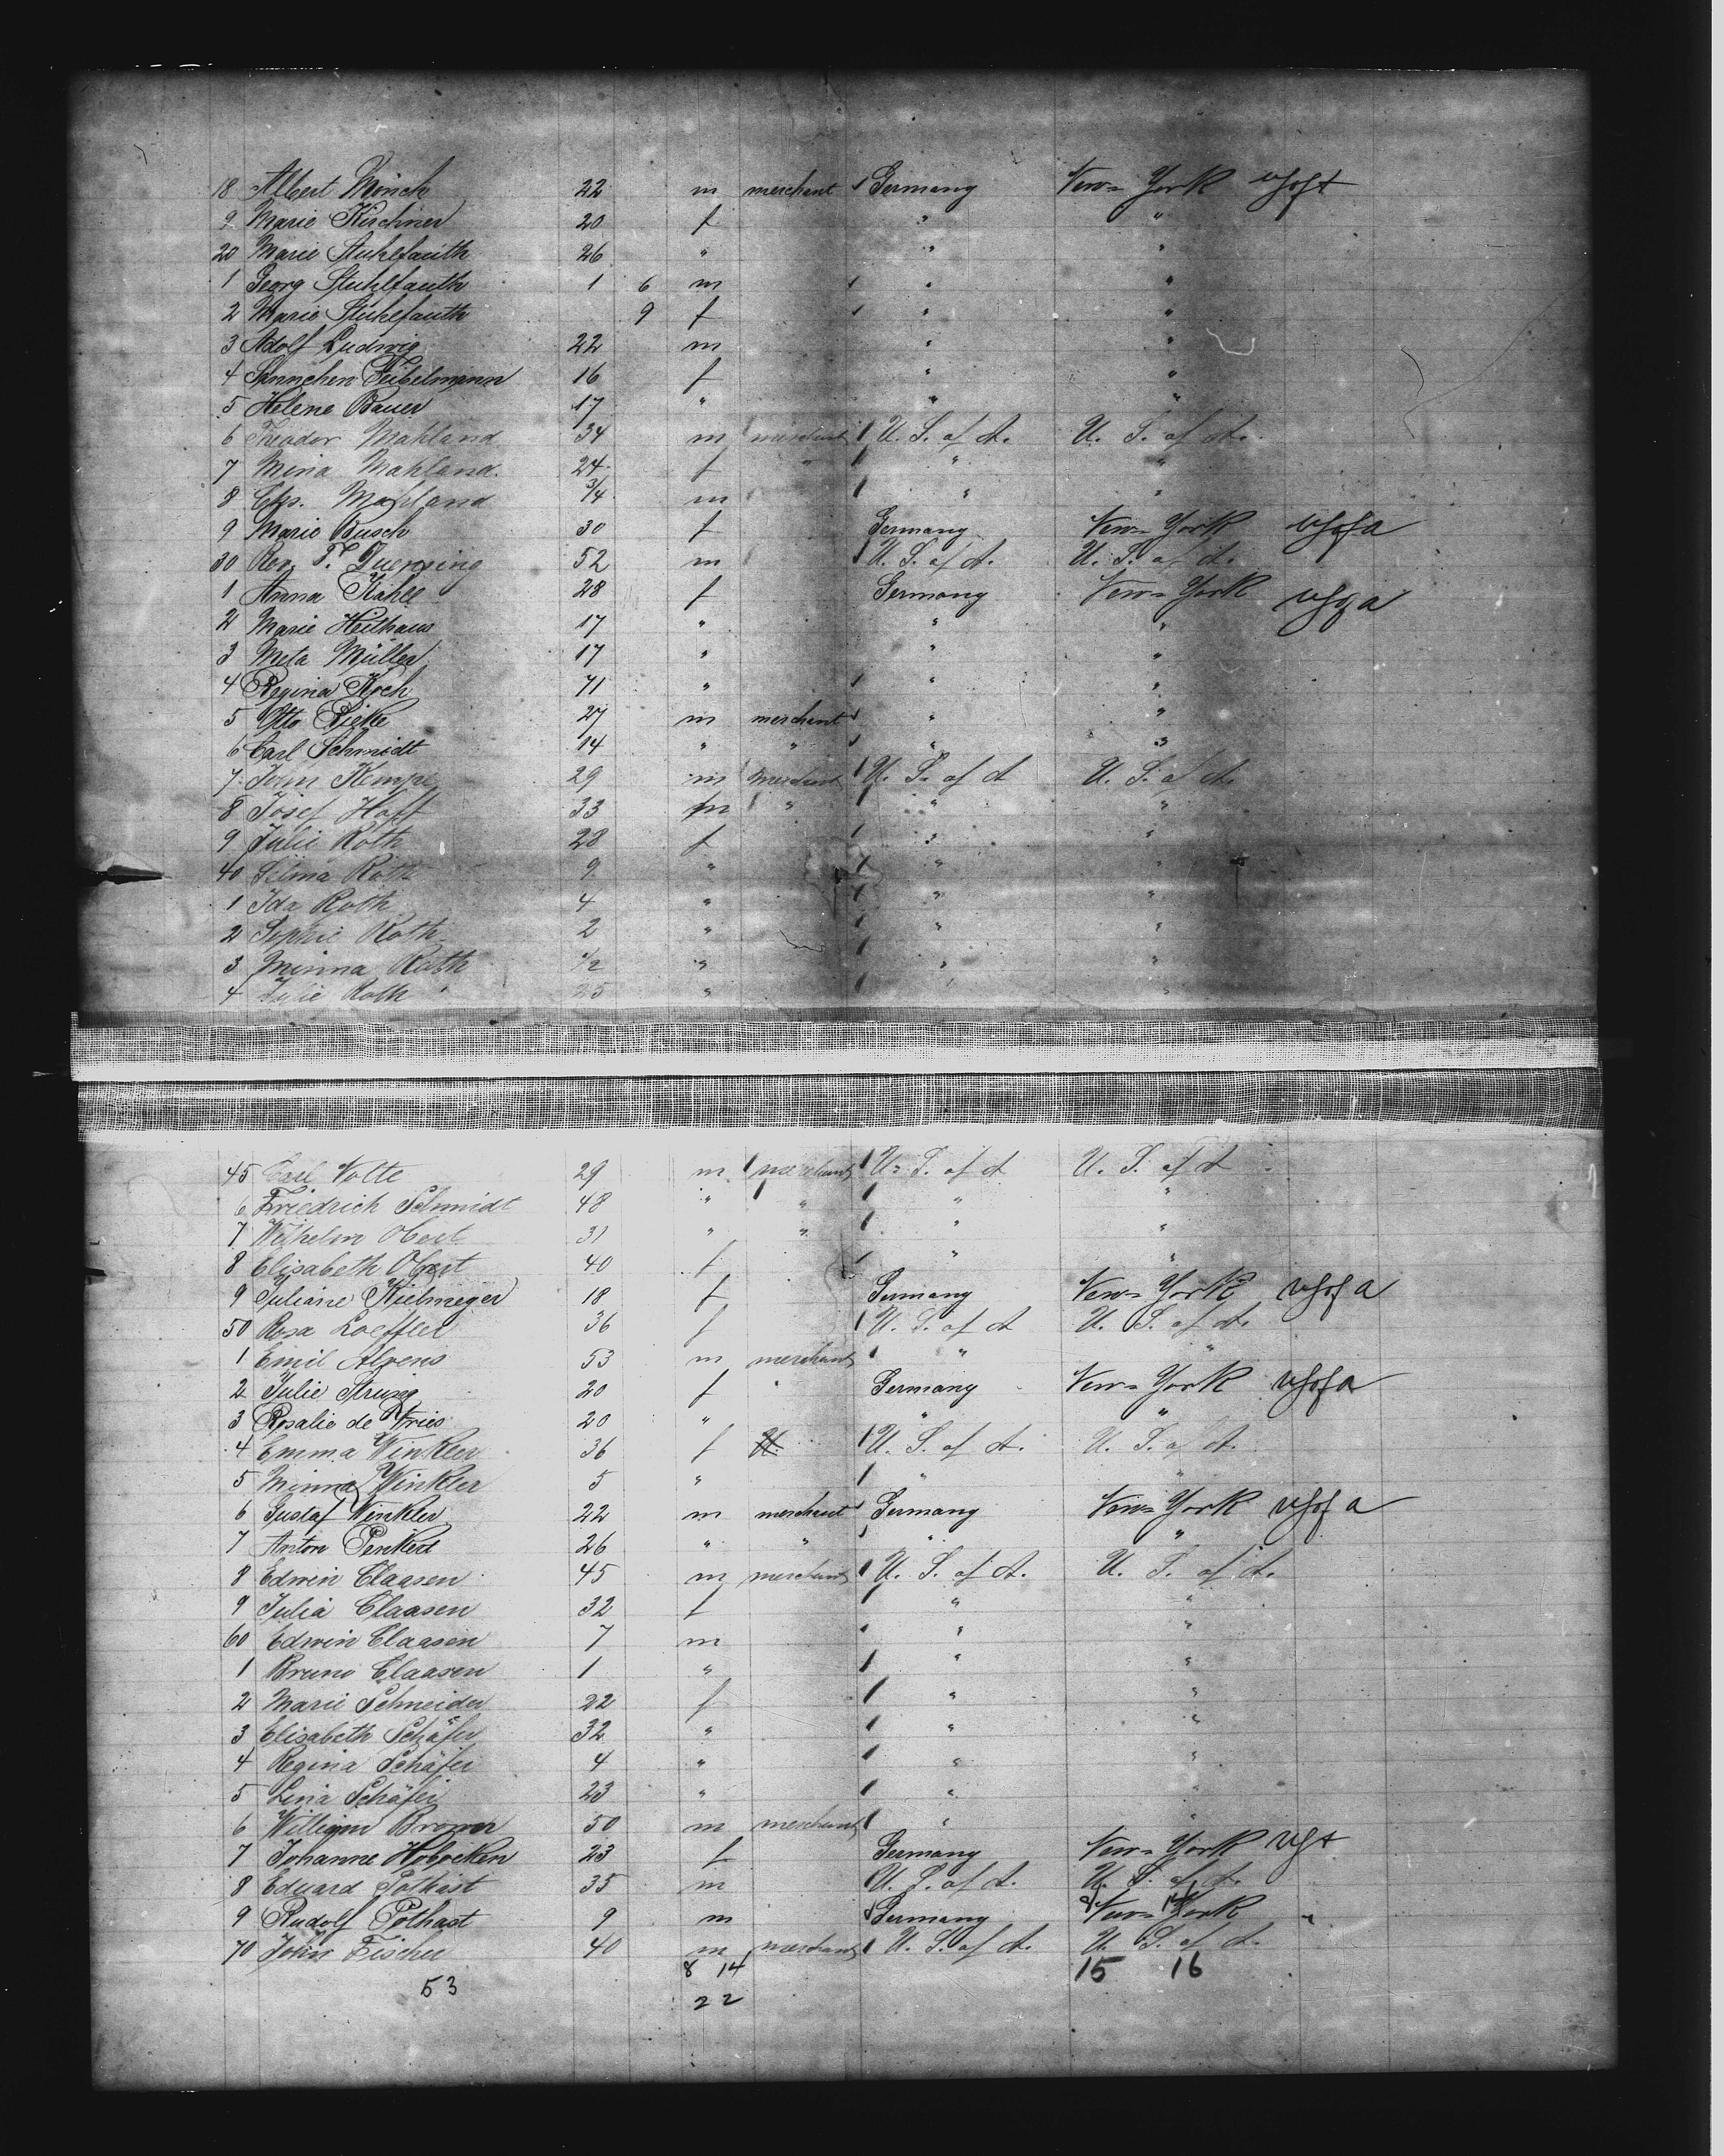 18 Albert Mönch 22 m merchant Germany New-York
9 Marie Kirchner 20 f " "
20 Marie Stuhlfauth 26 " " "
1 Georg Stuhlfauth 1 6 m " "
2 Marie Stuhlfauth 9 f " "
3 Adolf Ludwig 22 m " "
4 Feibelmann 16 f " "
5 Helene Bauer 17 " " "
6 Theodor Mahland 34 m merchant U. S. of A. U. S. of A.
7 Mina Mahland 24 f " "
8 Chs. Mahland 3/4 m " "
9 Marie Busch 30 f Germany New-York
30 Rev. F. 52 m U. S. of A. U. S. of A.
1 Anna Kahle 28 f Germany New-York
2 Marie Heithaus 17 " " "
3 Meta Müller 17 " " "
4 Regina Koch 71 " " "
5 Otto 27 m merchant " "
6 Carl Schmidt 14 " " " "
7 John Kempe 29 m merchant U. S. of A U. S. of A.
8 Josef Hoff 33 m " " "
9 Julie Roth 28 f " "
40 Selma Roth 9 " " "
1 Ida Roth 4 " " "
2 Sophie Roth 2 " " "
3 Minna Roth 1/2 " " "
4 Julie Roth 25 " " "
45 Carl Nolte 29 m merchant U. S. of A U. S. of A
6 Friedrich Schmidt 48 " " " "
7 Wilhelm 31 " " " "
8 Elisabeth 40 f " "
9 Juliane Kielmeyer 18 f Germany New-York
50 Rosa Loeffler 36 f U. S. of A U. S. of A.
1 Emil Ahrens 53 m merchant " "
2 Julie 20 f Germany New-York
3 Rosalie de Vries 20 " " "
4 Emma Winkler 36 f U. S. of A. U. S. of A.
5 Minna Winkler 5 " " "
6 Gustaf Winkler 22 m merchant Germany New-York
7 Anton Penkert 26 " " " "
8 Edwin Claasen 45 m merchant U. S. of A. U. S. of A.
9 Julia Claasen 32 f " "
60 Edwin Claasen 7 m " "
1 Bruno Claasen 1 " " "
2 Marie Schneider 22 f " "
3 Elisabeth Schäfer 32 " " "
4 Regina Schäfer 4 " " "
5 Lina Schäfer 23 " " "
6 William Brown 50 m merchant " "
7 Johanne Hoboeken 23 f Germany New-York
8 Eduard Pothast 35 m U. S. of A. U. S. of A.
9 Rudolf Pothast 9 m Germany New-York "
70 John Fischer 40 m merchant U. S. of A. U. S. of A.
8 14 15 16
53
22